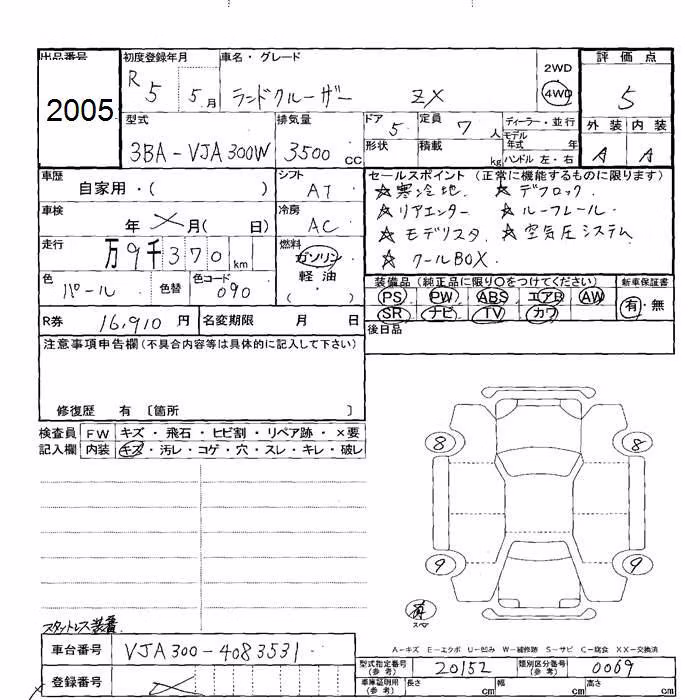 出品番号 初度登録年月 車名・グレード 評価点
2005 R5 5月 ランドクルーザー ZX 2WD 4WD 5
型式 排気量 ドア 定員 ディーラー・並行 外装 内装
3BA-VJA300W 3500cc 5 7人 モデル年式 年 A A
形状 積載 kg ハンドル 左・右
車歴 シフト セールスポイント (正常に機能するものに限ります)
自家用・( ) AT ☆寒冷地. ☆デフロック.
車検 冷房 ☆リアエンター ☆ルーフレール.
年 月( 日) AC ☆モデリスタ ☆空気圧システム
走行 燃料 ☆クールBOX.
万9千370km ガソリン
色 色コード 軽油
パール 色替 090 ( )
装備品 (純正品に限り○をつけてください) 新車保証書
PS PW ABS エアB AW 有・無
SR ナビ TV カワ
R券 16,910円 名変期限 月 日 後日品
注意事項申告欄(不具合内容等は具体的に記入して下さい)
修復歴 有 〔箇所 〕
検査員 FW キズ・飛石・ヒビ割・リペア跡・×要
記入欄 内装 キズ・汚レ・コゲ・穴・スレ・キレ・破レ
8 8
9 9
有
スペア
スタットレス装着.
A-キズ E-エクボ U-凹み W-補修跡 S-サビ C-腐食 XX-交換済
車台番号 VJA300-4083531 型式指定番号(参考) 20152 類別区分番号(参考) 0069
登録番号 車庫証明用(参考) 長さ cm 幅 cm 高さ cm